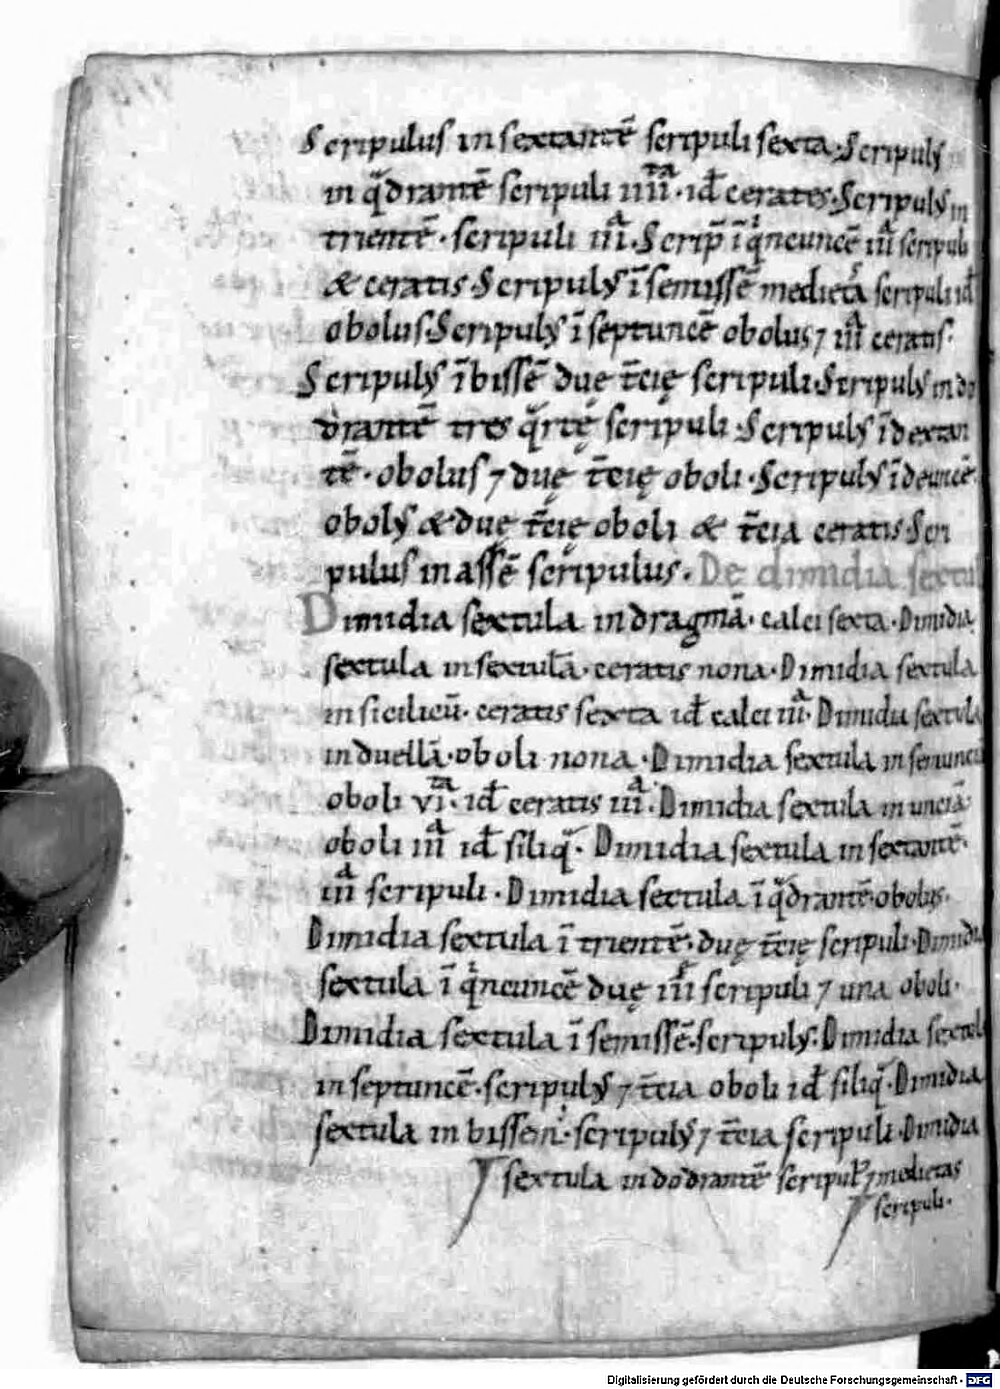 Scripulus in sextantē scripuli sexta. Scripulꝰ
in q̄drantē scripuli iiii^ta. id̄ ceratis. Scripulꝰ in
trientē. scripuli iii^a. Scrip̄ ī qͥncuncē iii^a scripuli
& ceratis. Scripulꝰ ī semissē medietas scripuli id̄
obolus. Scripulꝰ ī septuncē obolus ⁊ iii^a ceratis.
Scripulꝰ ī bissē duę t̄cię scripuli. Scripulꝰ in do
drantē tres q̄rtę scripuli. Scripulꝰ ī dextan
tē. obolus ⁊ duę t̄cię oboli. Scripulꝰ ī deuncē.
obolꝰ & duę t̄cię oboli & t̄cia ceratis. Scri
pulus in assē scripulus. De dimidia sextul
Dimidia sextula in dragmā. calci sexta. Dimidia
sextula in sextulā. ceratis nona. Dimidia sextula
in sicilicū. ceratis sexta id̄ calci iii^a. Dimidia sextula
in duellā. oboli nona. Dimidia sextula in semunciā
oboli vi^ta. id̄ ceratis iii^a. Dimidia sextula in unciā
oboli iii^a id̄ siliq̄. Dimidia sextula in sextantē.
iii^a scripuli. Dimidia sextula ī q̄drantē. obolus.
Dimidia sextula ī trientē. duę t̄cię scripuli. Dimidia
sextula ī qͥncuncē duę iii^ę scripuli ⁊ una oboli.
Dimidia sextula ī semissē. scripulꝰ. Dimidia sextul
in septuncē. scripulꝰ ⁊ t̄cia oboli id̄ siliq̄. Dimidia
sextula in bissem. scripulꝰ ⁊ t̄cia scripuli. Dimidia
sextula in dodrantē scripulꝰ ⁊ medietas
scripuli.
Digitalisierung gefördert durch die Deutsche Forschungsgemeinschaft - DFG